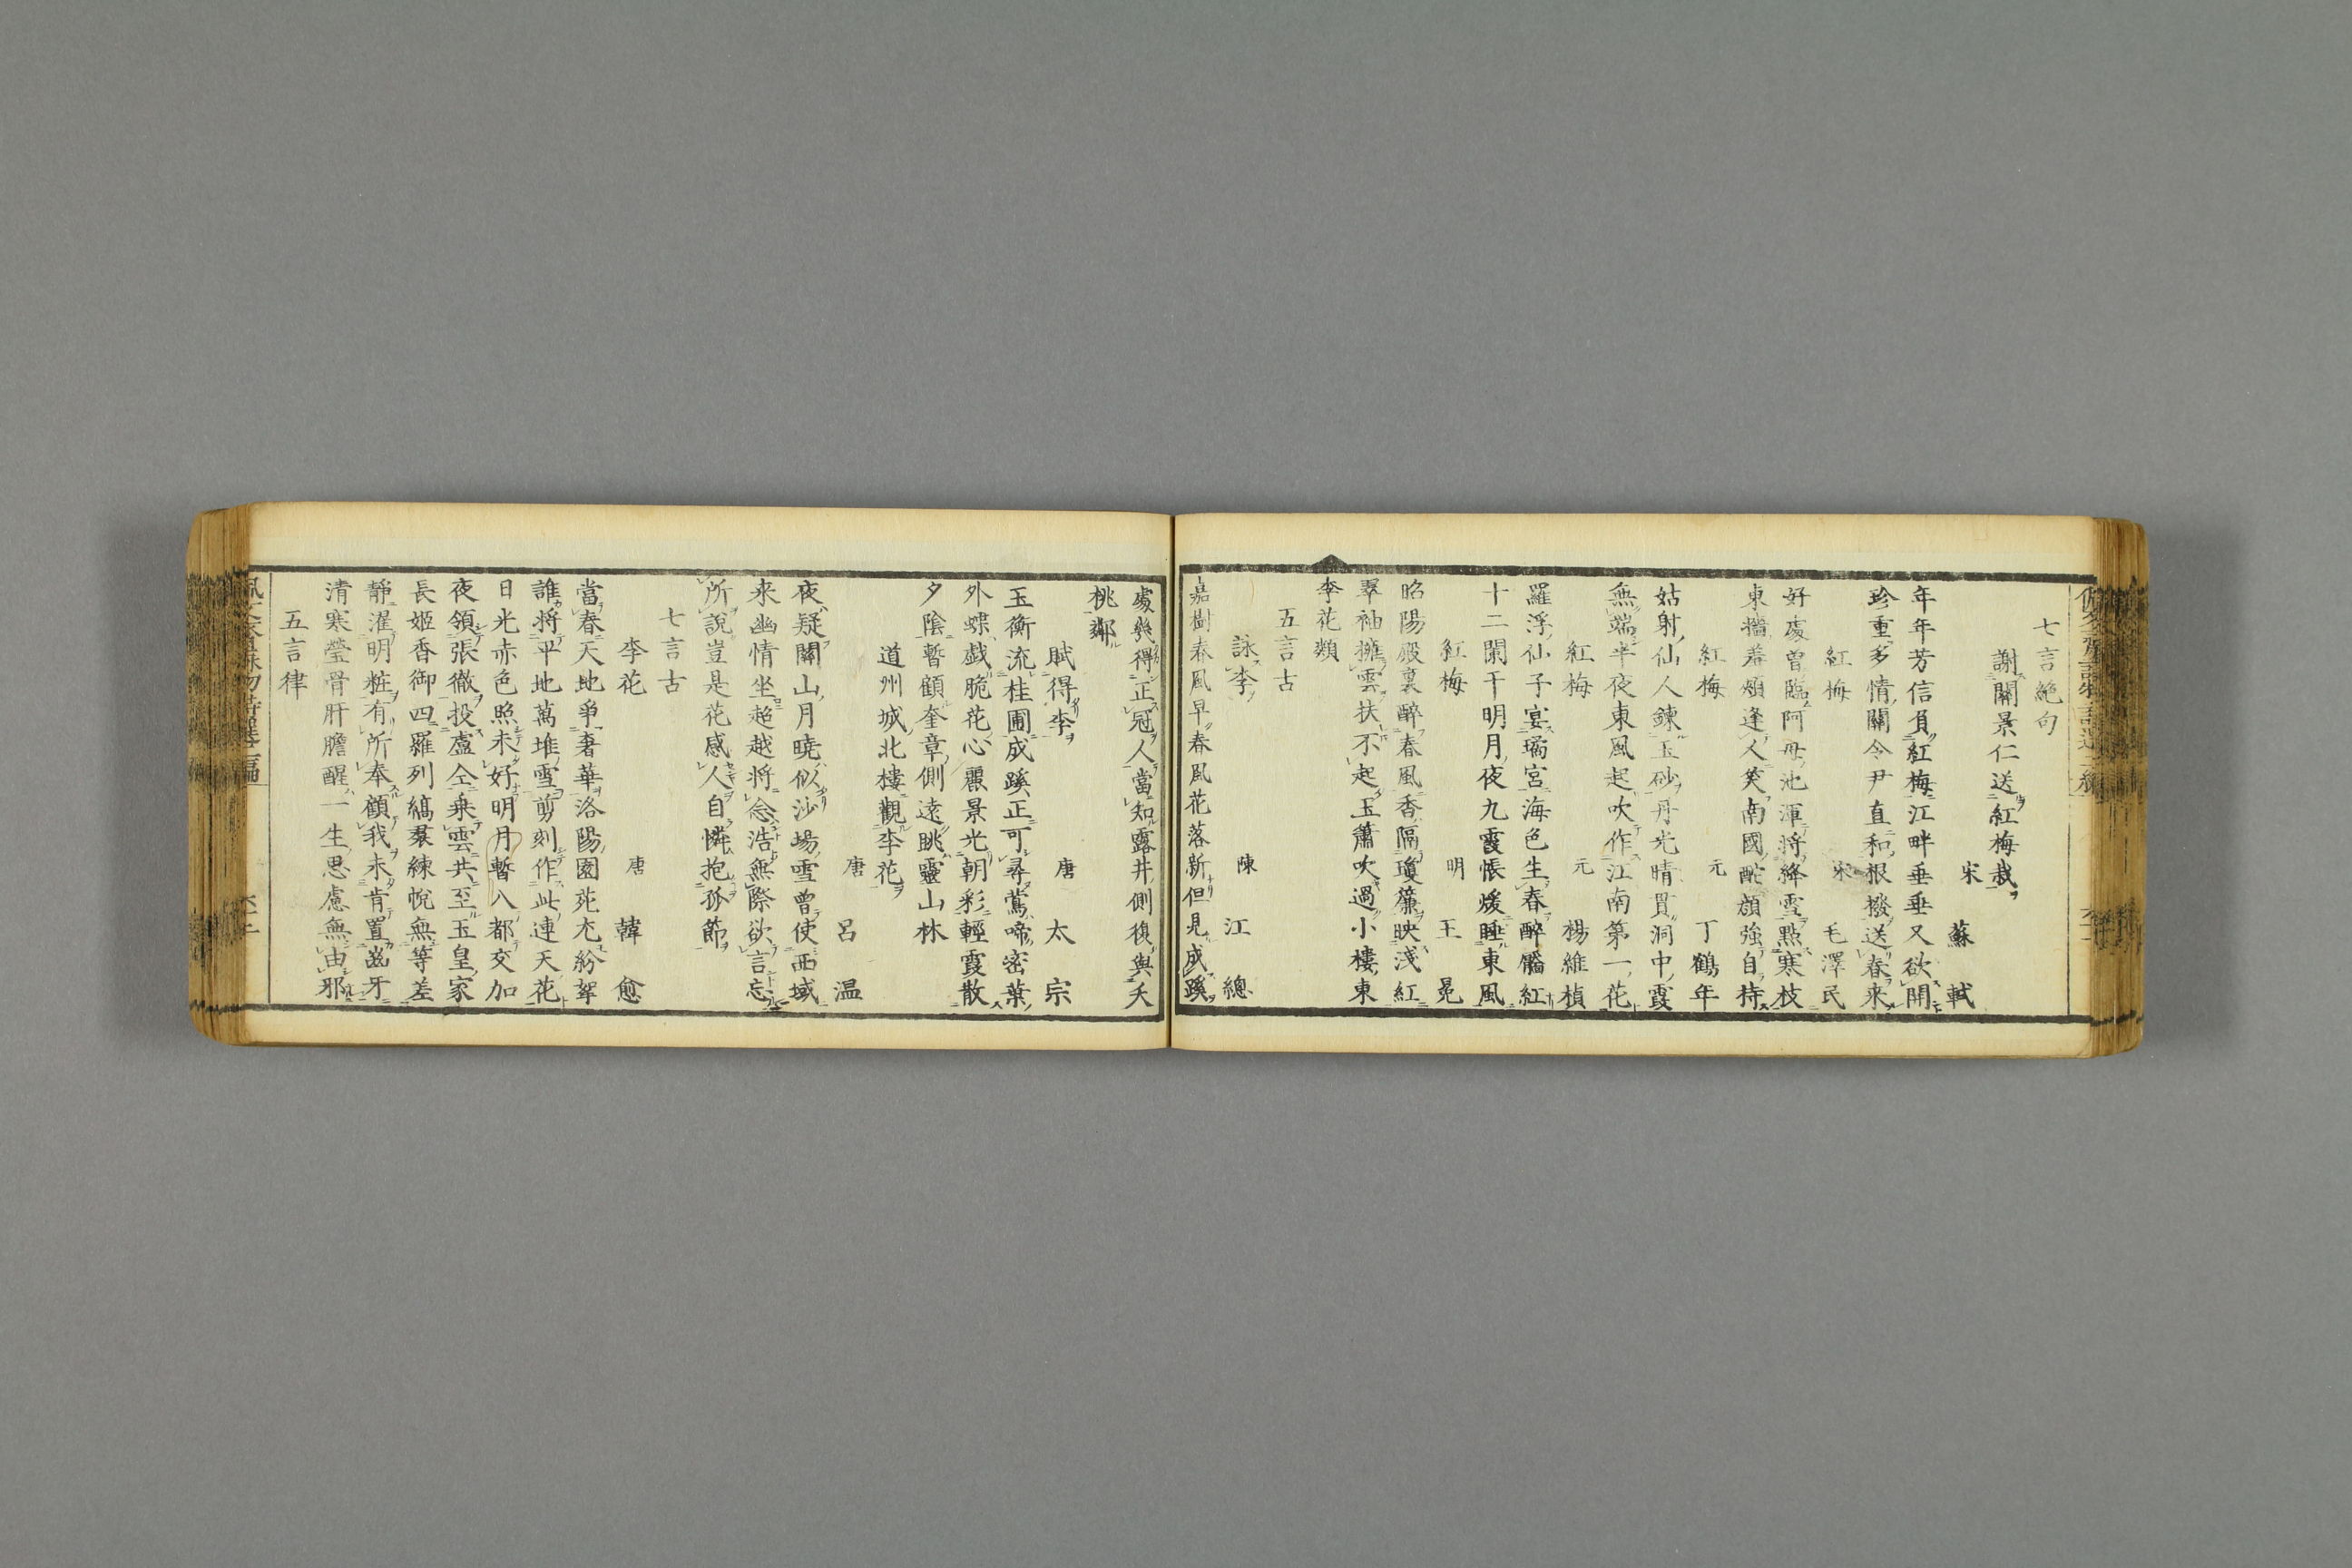 七言絶句
謝關景仁送紅梅栽
宋 蘇軾
年年芳信負紅梅江畔垂垂又欲開
珍重多情關令尹直和根撥送春來
紅梅 宋 毛澤民
好處曽臨阿母池渾将絳雪點寒枝
東墻羞頰逢人笑南國酡顔強自持
紅梅 元 丁鶴年
姑射仙人鍊玉砂丹光晴貫洞中霞
無端半夜東風起吹作江南第一花
紅梅 元 楊維楨
羅浮仙子宴瑤宮海色生春醉靨紅
十二闌干明月夜九霞帳煖睡東風
紅梅 明 王冕
昭陽殿裏醉春風香隔瓊簾映淺紅
翠袖擁雲扶不起玉簫吹過小樓東
李花類
五言古
詠李 陳 江總
嘉樹春風早春風花落新但見成蹊
處幾得正冠人當知露井側復與夭
桃鄰
賦得李 唐 太宗
玉衡流桂圃成蹊正可尋鶯啼密葉
外蝶戯脆花心麗景光朝彩輕霞散
夕陰暫顧奎章側遠眺靈山林
道州城北樓觀李花
唐 呂温
夜疑關山月曉似沙場雪曽使西域
来幽情坐超越将念浩無際欲言忘
所說豈是花感人自憐抱孤節
七言古
李花 唐 韓愈
當春天地爭奢華洛陽園苑尤紛挐
誰将平地萬堆雪剪刻作此連天花
日光赤色照未好明月暫入都交加
夜領張徹投盧仝乗雲共至玉皇家
長姬香御四羅列縞裠練帨無等差
靜濯明粧有所奉顧我未肯置齒牙
清寒瑩骨肝膽醒一生思慮無由邪
五言律